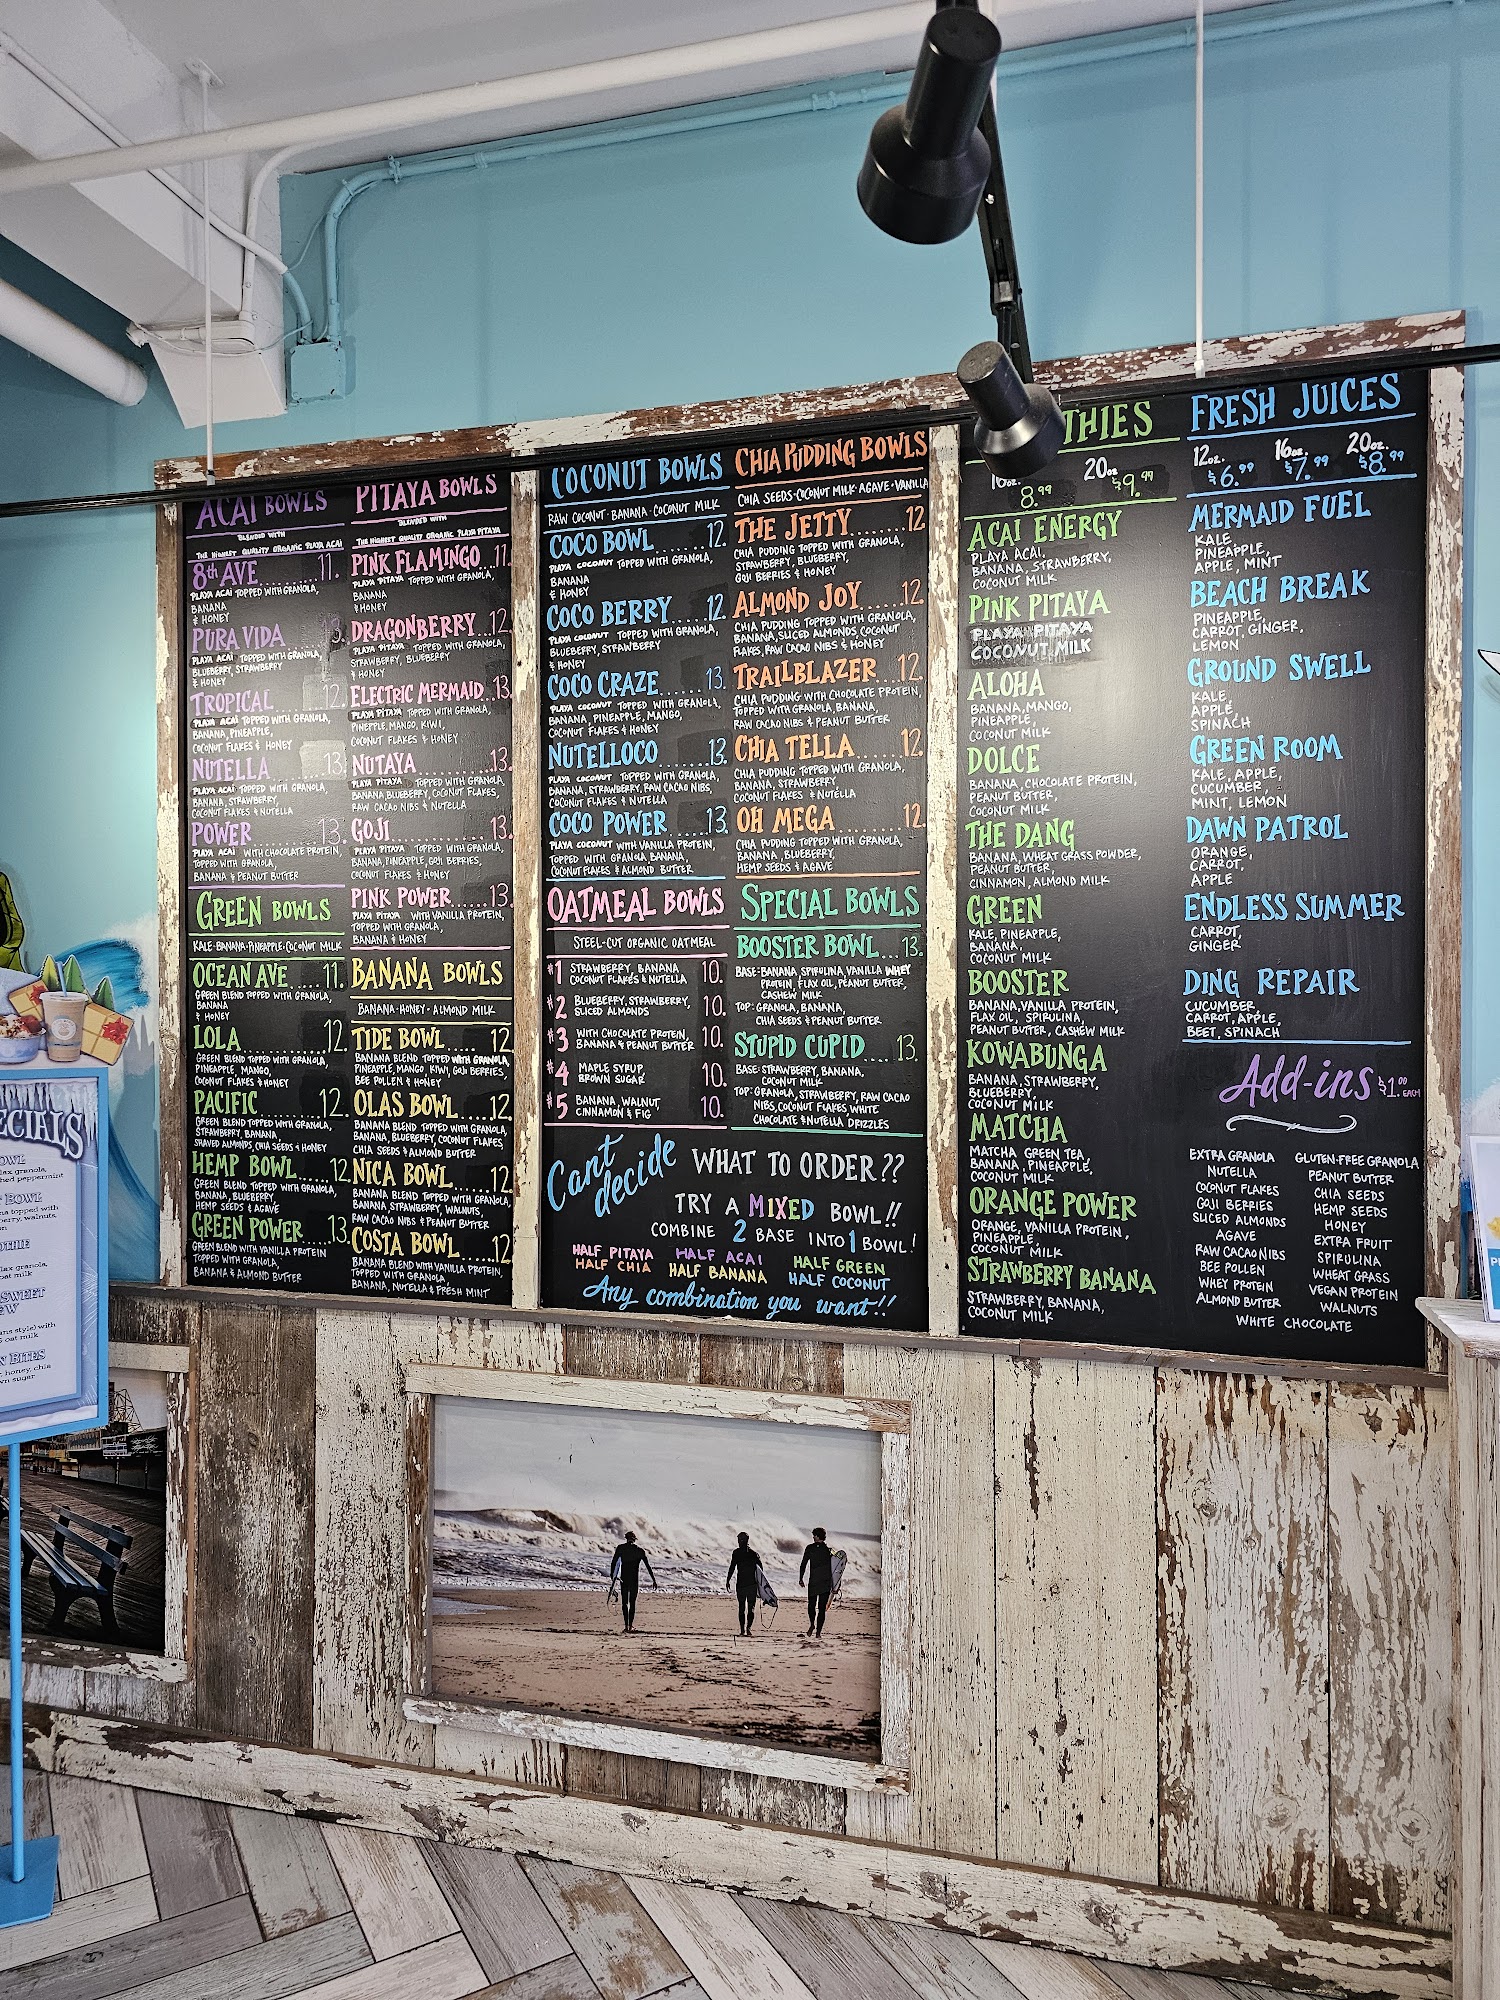 ACAI BOWLS
BLENDED WITH
THE HIGHEST QUALITY ORGANIC PLAYA ACAI
8th AVE........11.
PLAYA ACAI TOPPED WITH GRANOLA,
BANANA
& HONEY
PURA VIDA 13.
PLAYA ACAI TOPPED WITH GRANOLA,
BLUEBERRY, STRAWBERRY
& HONEY
TROPICAL 12.
PLAYA ACAI TOPPED WITH GRANOLA,
BANANA, PINEAPPLE,
COCONUT FLAKES & HONEY
NUTELLA 13.
PLAYA ACAI TOPPED WITH GRANOLA,
BANANA, STRAWBERRY,
COCONUT FLAKES & NUTELLA
POWER 13.
PLAYA ACAI WITH CHOCOLATE PROTEIN,
TOPPED WITH GRANOLA,
BANANA & PEANUT BUTTER
GREEN BOWLS
KALE·BANANA·PINEAPPLE·COCONUT MILK
OCEAN AVE.....11.
GREEN BLEND TOPPED WITH GRANOLA,
BANANA
& HONEY
LOLA...........12.
GREEN BLEND TOPPED WITH GRANOLA,
PINEAPPLE, MANGO,
COCONUT FLAKES & HONEY
PACIFIC.......12.
GREEN BLEND TOPPED WITH GRANOLA,
STRAWBERRY, BANANA,
SHAVED ALMONDS, CHIA SEEDS & HONEY
HEMP BOWL....12.
GREEN BLEND TOPPED WITH GRANOLA,
BANANA, BLUEBERRY,
HEMP SEEDS & AGAVE
GREEN POWER...13.
GREEN BLEND WITH VANILLA PROTEIN
TOPPED WITH GRANOLA,
BANANA & ALMOND BUTTER
PITAYA BOWLS
BLENDED WITH
THE HIGHEST QUALITY ORGANIC PLAYA PITAYA
PINK FLAMINGO...11.
PLAYA PITAYA TOPPED WITH GRANOLA,
BANANA
& HONEY
DRAGONBERRY...12.
PLAYA PITAYA TOPPED WITH GRANOLA,
STRAWBERRY, BLUEBERRY
& HONEY
ELECTRIC MERMAID..13.
PLAYA PITAYA TOPPED WITH GRANOLA,
PINEPPLE, MANGO, KIWI,
COCONUT FLAKES & HONEY
NUTAYA..........13.
PLAYA PITAYA TOPPED WITH GRANOLA
BANANA, BLUEBERRY, COCONUT FLAKES,
RAW CACAO NIBS & NUTELLA
GOJI..............13.
PLAYA PITAYA TOPPED WITH GRANOLA,
BANANA, PINEAPPLE, GOJI BERRIES,
COCONUT FLAKES & HONEY
PINK POWER....13.
PLAYA PITAYA WITH VANILLA PROTEIN,
TOPPED WITH GRANOLA,
BANANA & HONEY
BANANA BOWLS
BANANA·HONEY·ALMOND MILK
TIDE BOWL ..... 12
BANANA BLEND TOPPED WITH GRANOLA,
PINEAPPLE, MANGO, KIWI, GOJI BERRIES,
BEE POLLEN & HONEY
OLAS BOWL....12.
BANANA BLEND TOPPED WITH GRANOLA,
BANANA, BLUEBERRY, COCONUT FLAKES,
CHIA SEEDS & ALMOND BUTTER
NICA BOWL......12.
BANANA BLEND TOPPED WITH GRANOLA,
BANANA, STRAWBERRY, WALNUTS,
RAW CACAO NIBS & PEANUT BUTTER
COSTA BOWL....12.
BANANA BLEND WITH VANILLA PROTEIN,
TOPPED WITH GRANOLA,
BANANA, NUTELLA & FRESH MINT
COCONUT BOWLS
RAW COCONUT·BANANA·COCONUT MILK
COCO BOWL.......12.
PLAYA COCONUT TOPPED WITH GRANOLA,
BANANA
& HONEY
COCO BERRY....12.
PLAYA COCONUT TOPPED WITH GRANOLA,
BLUEBERRY, STRAWBERRY
& HONEY
COCO CRAZE......13.
PLAYA COCONUT TOPPED WITH GRANOLA,
BANANA, PINEAPPLE, MANGO,
COCONUT FLAKES & HONEY
NUTELLOCO......13.
PLAYA COCONUT TOPPED WITH GRANOLA,
BANANA, STRAWBERRY, RAW CACAO NIBS,
COCONUT FLAKES & NUTELLA
COCO POWER.....13.
PLAYA COCONUT WITH VANILLA PROTEIN,
TOPPED WITH GRANOLA, BANANA,
COCONUT FLAKES & ALMOND BUTTER
OATMEAL BOWLS
STEEL-CUT ORGANIC OATMEAL
#1 STRAWBERRY, BANANA 10.
COCONUT FLAKES & NUTELLA
#2 BLUEBERRY, STRAWBERRY, 10.
SLICED ALMONDS
#3 WITH CHOCOLATE PROTEIN, 10.
BANANA & PEANUT BUTTER
#4 MAPLE SYRUP, 10.
BROWN SUGAR
#5 BANANA, WALNUT, 10.
CINNAMON & FIG
CHIA PUDDING BOWLS
CHIA SEEDS·COCONUT MILK·AGAVE·VANILLA
THE JETTY.......12.
CHIA PUDDING TOPPED WITH GRANOLA,
STRAWBERRY, BLUEBERRY,
GOJI BERRIES & HONEY
ALMOND JOY......12.
CHIA PUDDING TOPPED WITH GRANOLA,
BANANA, SLICED ALMONDS, COCONUT
FLAKES, RAW CACAO NIBS & HONEY
TRAILBLAZER...12.
CHIA PUDDING WITH CHOCOLATE PROTEIN,
TOPPED WITH GRANOLA, BANANA,
RAW CACAO NIBS & PEANUT BUTTER
CHIA TELLA......12.
CHIA PUDDING TOPPED WITH GRANOLA,
BANANA, STRAWBERRY
COCONUT FLAKES & NUTELLA
OH MEGA..........12.
CHIA PUDDING TOPPED WITH GRANOLA,
BANANA, BLUEBERRY,
HEMP SEEDS & AGAVE
SPECIAL BOWLS
BOOSTER BOWL...13.
BASE: BANANA, SPIRULINA, VANILLA WHEY
PROTEIN, FLAX OIL, PEANUT BUTTER,
CASHEW MILK
TOP: GRANOLA, BANANA,
CHIA SEEDS & PEANUT BUTTER
STUPID CUPID.....13.
BASE: STRAWBERRY, BANANA,
COCONUT MILK
TOP: GRANOLA, STRAWBERRY, RAW CACAO
NIBS, COCONUT FLAKES, WHITE
CHOCOLATE & NUTELLA DRIZZLES
Can't decide WHAT TO ORDER??
TRY A MIXED BOWL!!
COMBINE 2 BASE INTO 1 BOWL!
HALF PITAYA HALF ACAI HALF GREEN
HALF CHIA HALF BANANA HALF COCONUT
Any combination you want!!
THIES
16oz. 8.99 20oz $9.99
ACAI ENERGY
PLAYA ACAI,
BANANA, STRAWBERRY,
COCONUT MILK
PINK PITAYA
PLAYA PITAYA
COCONUT MILK
ALOHA
BANANA, MANGO,
PINEAPPLE,
COCONUT MILK
DOLCE
BANANA, CHOCOLATE PROTEIN,
PEANUT BUTTER,
COCONUT MILK
THE DANG
BANANA, WHEAT GRASS POWDER,
PEANUT BUTTER,
CINNAMON, ALMOND MILK
GREEN
KALE, PINEAPPLE,
BANANA,
COCONUT MILK
BOOSTER
BANANA, VANILLA PROTEIN,
FLAX OIL, SPIRULINA,
PEANUT BUTTER, CASHEW MILK
KOWABUNGA
BANANA, STRAWBERRY,
BLUEBERRY,
COCONUT MILK
MATCHA
MATCHA GREEN TEA,
BANANA, PINEAPPLE,
COCONUT MILK
ORANGE POWER
ORANGE, VANILLA PROTEIN,
PINEAPPLE,
COCONUT MILK
STRAWBERRY BANANA
STRAWBERRY, BANANA,
COCONUT MILK
FRESH JUICES
12oz. $6.99 16oz. $7.99 20oz. $8.99
MERMAID FUEL
KALE,
PINEAPPLE,
APPLE, MINT
BEACH BREAK
PINEAPPLE,
CARROT, GINGER,
LEMON
GROUND SWELL
KALE,
APPLE,
SPINACH
GREEN ROOM
KALE, APPLE,
CUCUMBER,
MINT, LEMON
DAWN PATROL
ORANGE,
CARROT,
APPLE
ENDLESS SUMMER
CARROT,
GINGER
DING REPAIR
CUCUMBER,
CARROT, APPLE,
BEET, SPINACH
Add-ins $1.00 EACH
EXTRA GRANOLA
NUTELLA
COCONUT FLAKES
GOJI BERRIES
SLICED ALMONDS
AGAVE
RAW CACAO NIBS
BEE POLLEN
WHEY PROTEIN
ALMOND BUTTER
GLUTEN-FREE GRANOLA
PEANUT BUTTER
CHIA SEEDS
HEMP SEEDS
HONEY
EXTRA FRUIT
SPIRULINA
WHEAT GRASS
VEGAN PROTEIN
WALNUTS
WHITE CHOCOLATE
ECIALS
OWL
granola,
peppermint
BOWL
topped with
walnuts,
granola,
oat milk
SWEET
style) with
oat milk
BITES
honey, chia
sugar